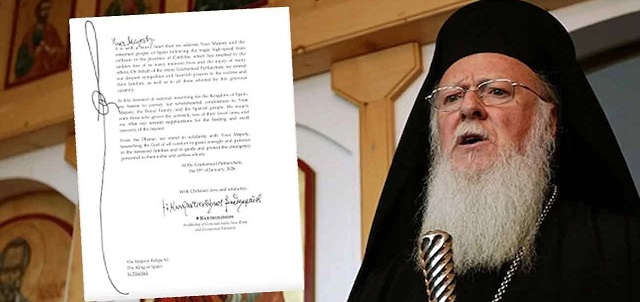 Your Majesty,
It is with a heavy heart that we address Your Majesty and the
esteemed people of Spain following the tragic high-speed train
collision in the province of Córdoba, which has resulted in the
sudden loss of so many innocent lives and the injury of many
others. On behalf of the entire Ecumenical Patriarchate, we extend
our deepest sympathies and heartfelt prayers to the victims and
their families, as well as to all those affected by this grievous
calamity.
In this moment of national mourning for the Kingdom of Spain,
we hasten to convey our wholehearted condolences to Your
Majesty, the Royal Family, and the Spanish people. We mourn
with those who grieve the untimely loss of their loved ones, and
we offer our fervent supplications for the healing and swift
recovery of the injured.
From the Phanar, we stand in solidarity with Your Majesty,
beseeching the God of all comfort to grant strength and patience
to the bereaved families and to guide and protect the emergency
personnel in their noble and selfless efforts.
At the Ecumenical Patriarchate,
the 19th of January, 2026
With Christian love and solidarity,
BARTHOLOMEW
Archbishop of Constantinople-New Rome
and Ecumenical Patriarch
His Majesty Felipe VI
The King of Spain
In Madrid